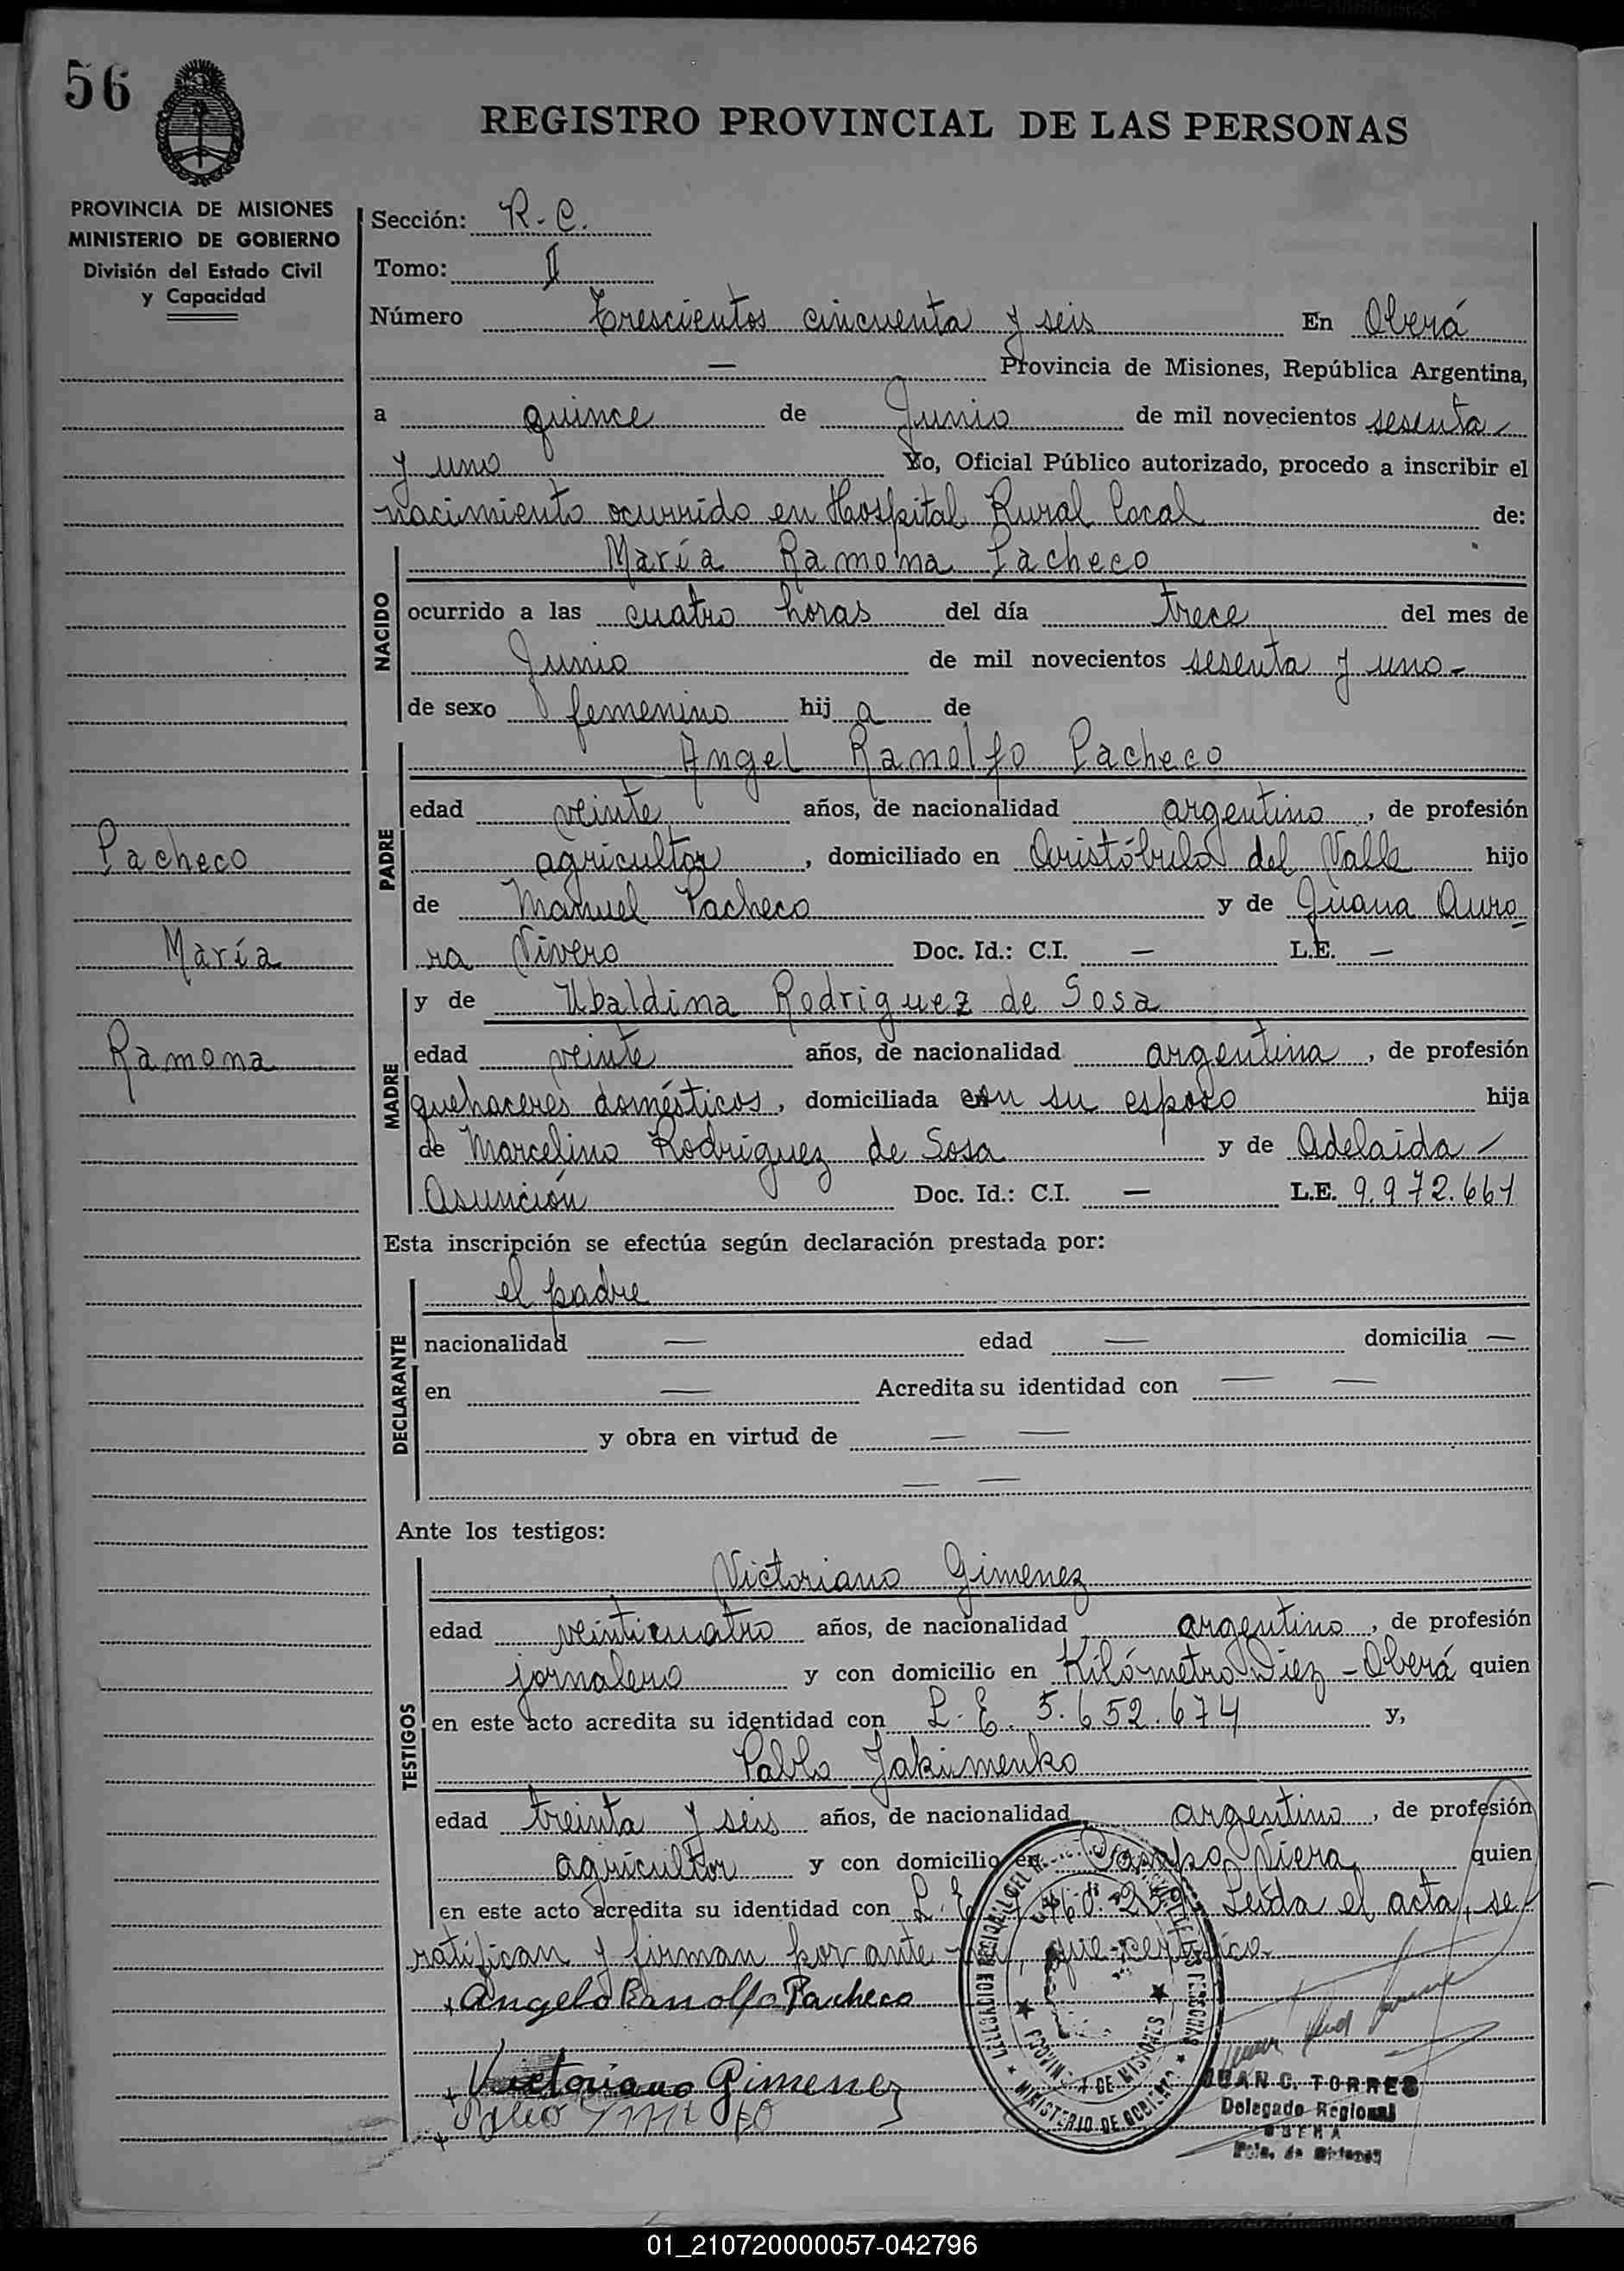 56
REGISTRO PROVINCIAL DE LAS PERSONAS
PROVINCIA DE MISIONES
MINISTERIO DE GOBIERNO
División del Estado Civil
y Capacidad
Sección: R.C.
Tomo: II
Número Trescientos cincuenta y seis En Oberá
— Provincia de Misiones, República Argentina,
a quince de Junio de mil novecientos sesenta
y uno Yo, Oficial Público autorizado, procedo a inscribir el
nacimiento ocurrido en Hospital Rural Local de:
NACIDO
María Ramona Pacheco
ocurrido a las cuatro horas del día trece del mes de
Junio de mil novecientos sesenta y uno-
de sexo femenino hij a de
PADRE
Angel Ranolfo Pacheco
edad veinte años, de nacionalidad argentino, de profesión
agricultor, domiciliado en Aristóbulo del Valle hijo
de Manuel Pacheco y de Juana Auro-
ra Vivero Doc. Id.: C.I. — L.E. —
Pacheco
María
Ramona
MADRE
y de Ubaldina Rodriguez de Sosa
edad veinte años, de nacionalidad argentina, de profesión
quehaceres domésticos, domiciliada con su esposo hija
de Marcelino Rodriguez de Sosa y de Adelaida
Asunción Doc. Id.: C.I. — L.E. 9.972.661
Esta inscripción se efectúa según declaración prestada por:
DECLARANTE
el padre
nacionalidad — edad — domicilia —
en — Acredita su identidad con — —
y obra en virtud de — —
— —
Ante los testigos:
TESTIGOS
Victoriano Gimenez
edad veinticuatro años, de nacionalidad argentino, de profesión
jornalero y con domicilio en Kilómetro Diez - Oberá quien
en este acto acredita su identidad con L.E. 5.652.674 y,
Pablo Jakimenko
edad treinta y seis años, de nacionalidad argentino, de profesión
agricultor y con domicilio en Campo Viera quien
en este acto acredita su identidad con L.E. Leída el acta, se
ratifican y firman por ante mí, que certifico.
Angelo Ranolfo Pacheco
Victoriano Gimenez
PROVINCIA DE MISIONES
MINISTERIO DE GOBIERNO
JUAN C. TORRES
Delegado Regional
OBERA
Pcia. de Misiones
01_210720000057-042796